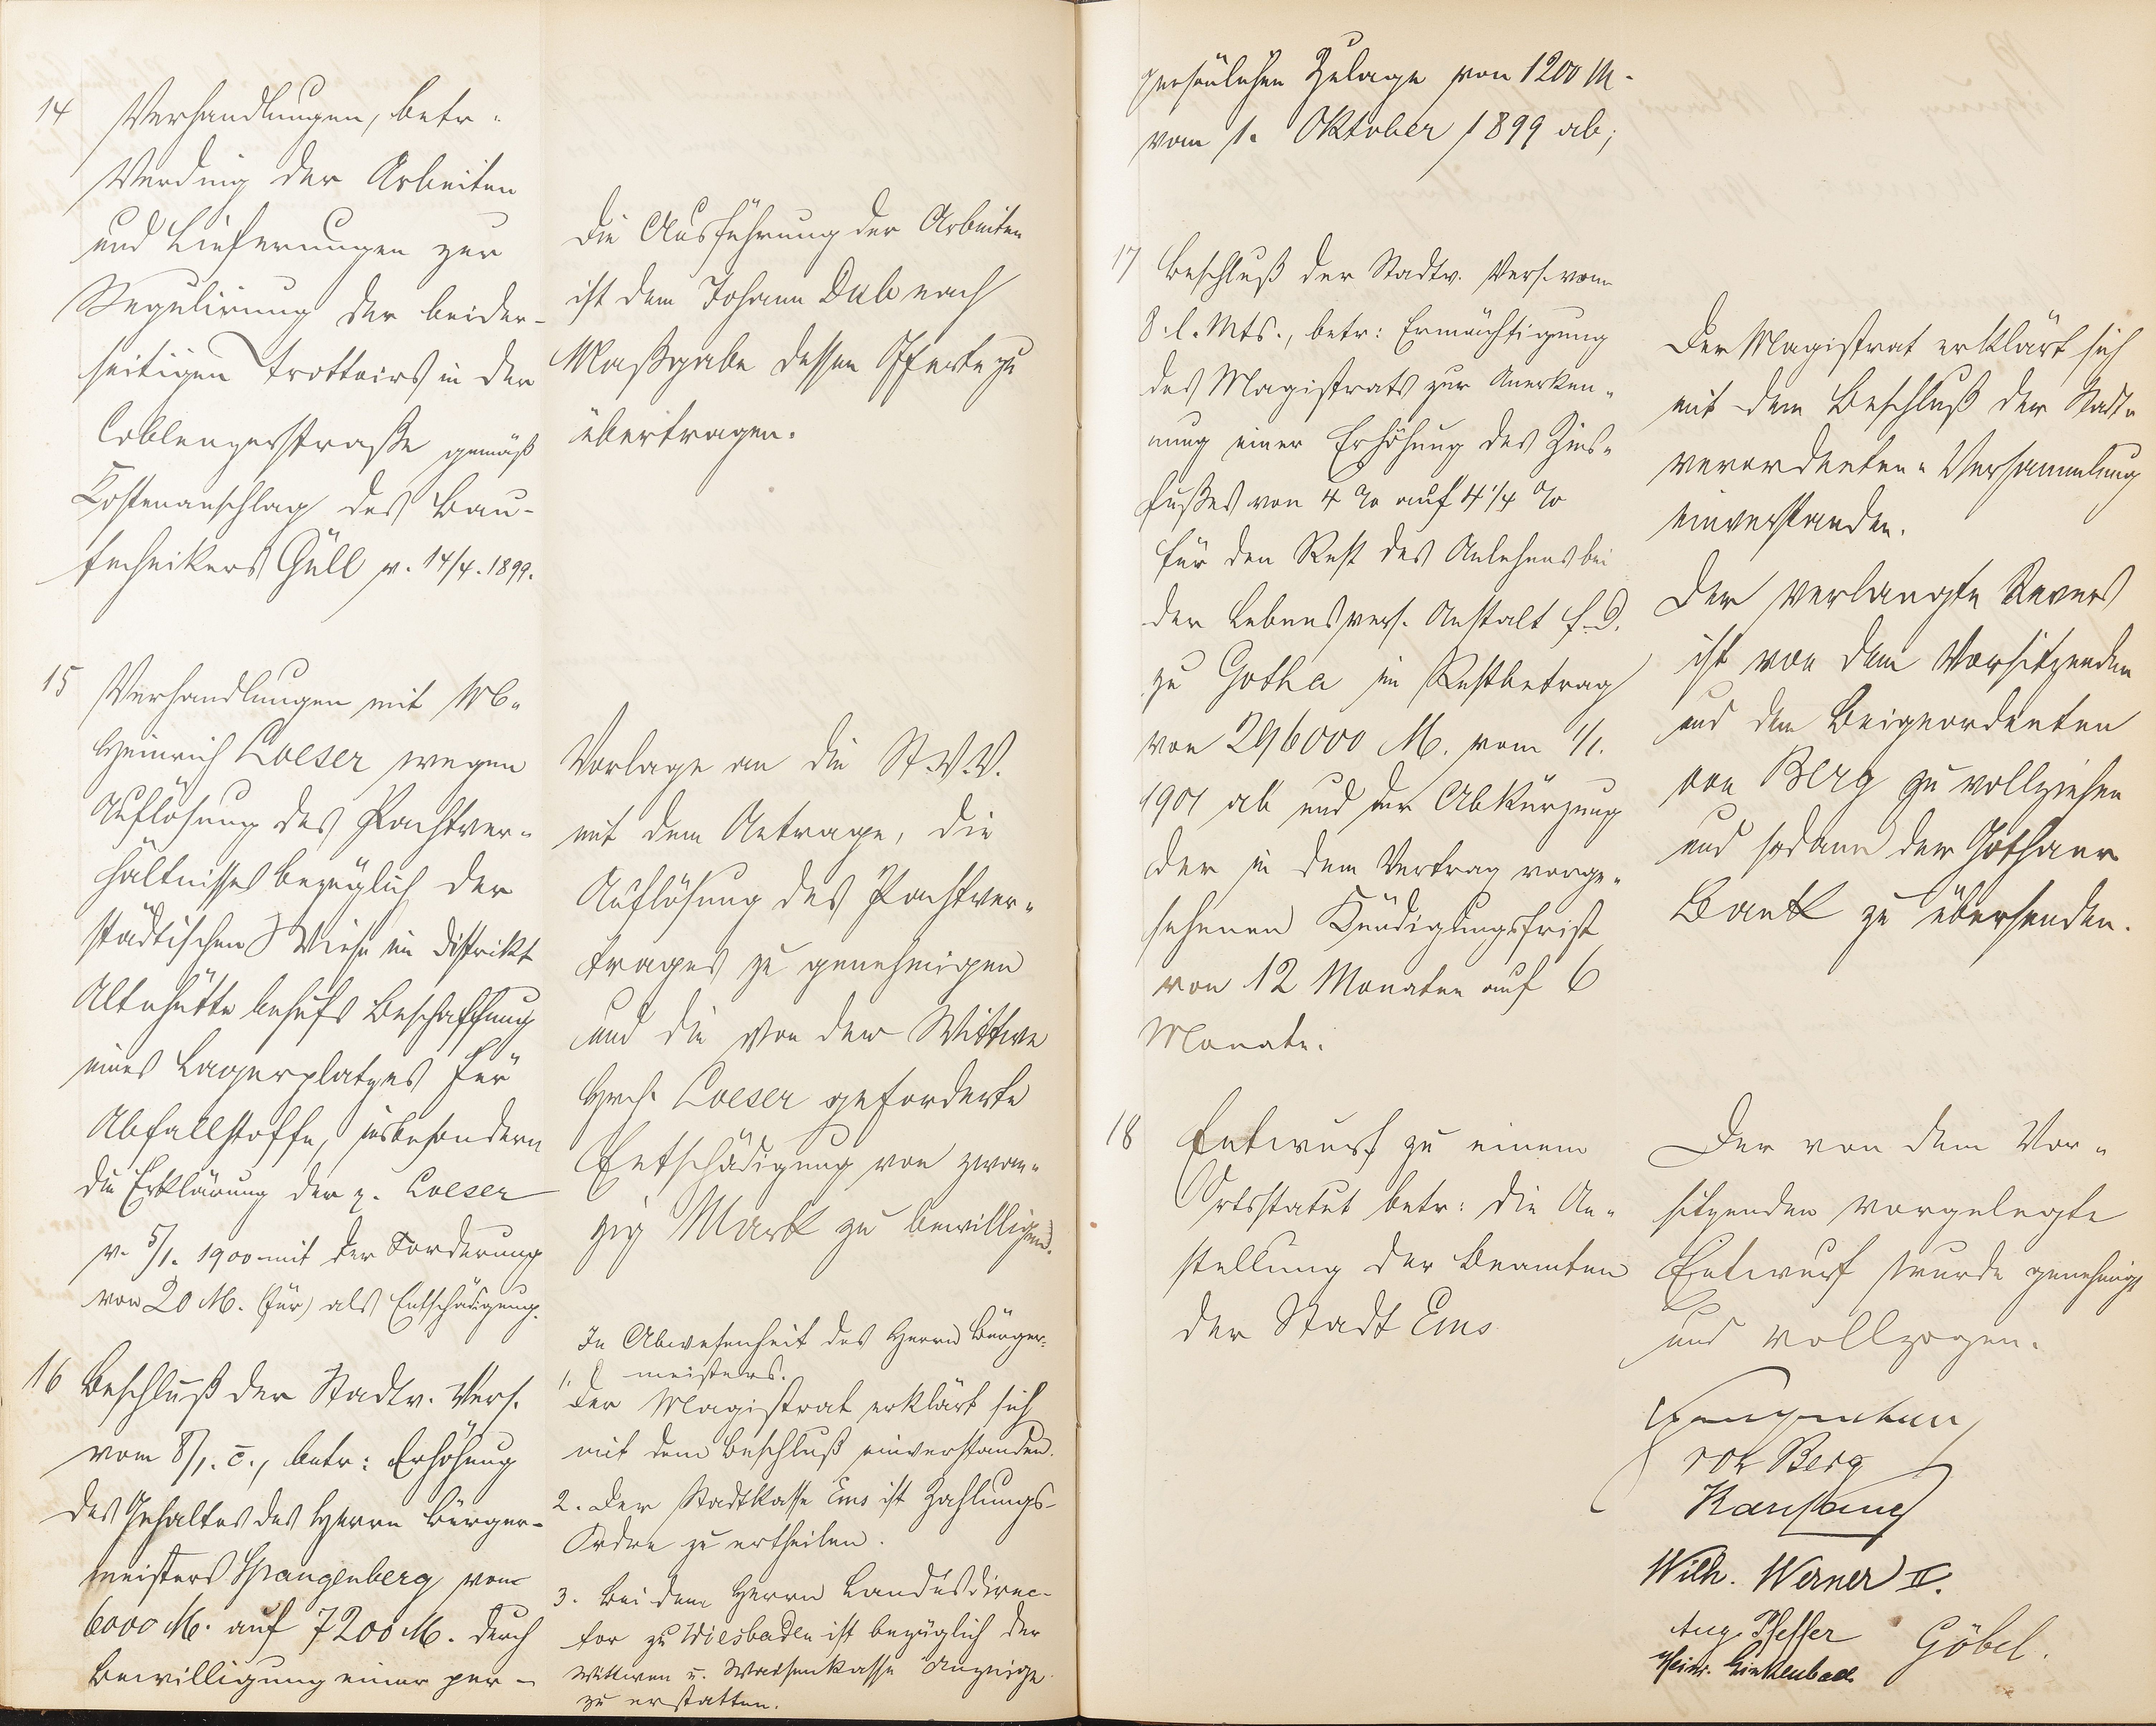 14 Verhandlungen, betr.
Verding der Arbeiten
und Lieferungen zur
Regulirung der beider-
seitigen Trottoirs in der
Coblenzerstraße gemäß
Kostenanschlag des Bau-
technikers Güll v. 14/4. 1899.
Die Ausführung der Arbeiten
ist dem Johann Dub nach
Maßgabe dessen Offerte zu
übertragen.
15 Verhandlungen mit Wb.
Heinrich Loeser wegen
Auflösung des Pachtver-
hältnisses bezüglich der
städtischen Wiese im Distrikt
Altehütte behufs Beschaffung
eines Lagerplatzes für
Abfallstoffe, insbesondern
die Erklärung der p. Loeser
v. 5/1. 1900 mit der Forderung
von 20 M. (für) als Entschädigung.
Vorlage an die St.V.V.
mit dem Antrage, die
Auflösung des Pachtver-
trages zu genehmigen
und die von der Wittwe
Hrch. Loeser geforderte
Entschädigung von zwan-
zig Mark zu bewilligen.
16 Beschluß der Stadtv. Vers.
vom 8/1. c., betr: Erhöhung
des Gehaltes des Herrn Bürger-
meisters Spangenberg von
6000 M. auf 7200 M. durch
Bewilligung einer per-
In Abwesenheit des Herrn Bürger-
meisters.
1. Der Magistrat erklärt sich
mit dem Beschluß einverstanden.
2. Der Stadtkasse Ems ist Zahlungs-
Ordre zu ertheilen.
3. Bei dem Herrn Landesdirec-
tor zu Wiesbaden ist bezüglich der
Wittwen u. Waisenkasse Anzeige
zu erstatten.
persönlichen Zulage von 1200 M.
vom 1. Oktober 1899 ab;
17 Beschluß der Stadtv. Vers. vom
8. l. Mts., betr: Ermächtigung
des Magistrats zur Anerken-
nung einer Erhöhung des Zins-
fußes von 4 % auf 4 1/4 %
für den Rest des Anlehens bei
der Lebensvers. Anstalt f. D.
zu Gotha im Restbetrag
von 296000 M. vom 1/1.
1901 ab und der Abkürzung
der in dem Vertrag vorge-
sehenen Kündigungsfrist
von 12 Monaten auf 6
Monate.
Der Magistrat erklärt sich
mit dem Beschluß der Stadt-
verordneten-Versammlung
einverstanden.
Der verlangte Revers
ist von dem Vorsitzenden
und dem Beigeordneten
von Berg zu vollziehen
und sodann der Gothaer
Bank zu übersenden.
18 Entwurf zu einem
Ortsstatut betr: die An-
stellung der Beamten
der Stadt Ems
Der von dem Vor-
sitzenden vorgelegte
Entwurf wurde genehmigt
und vollzogen.
Spangenberg
von Berg
Wilh. Werner II.
Aug. Pfeffer
Göbel.
Heinr. Linkenbach